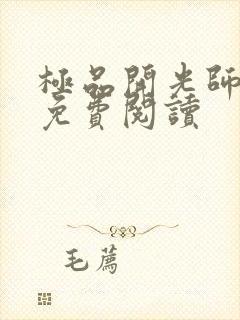 極品開光師
免費閱讀
毛薦